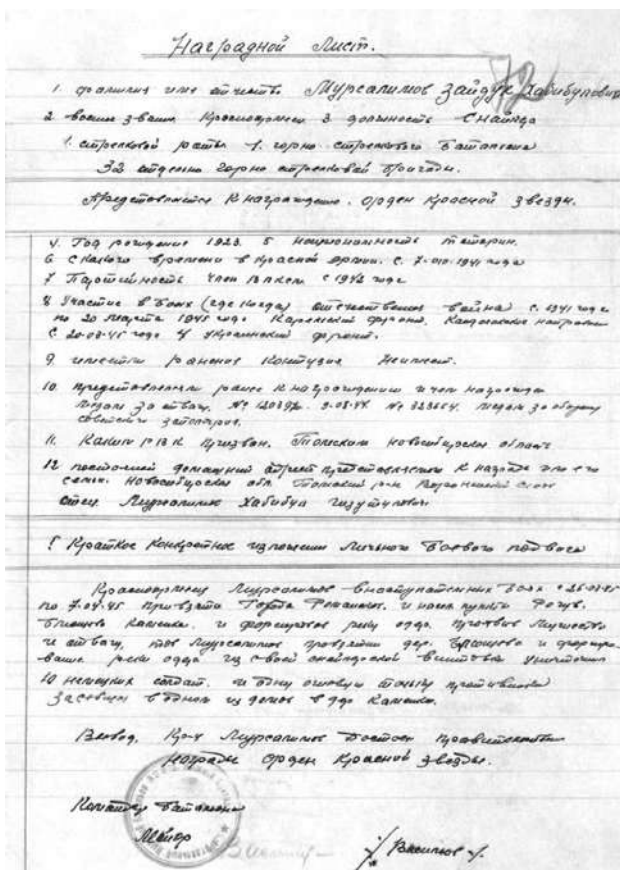 Наградной Лист.
1. фамилия имя отчество Мурсалимов Зайдук Хабибулович
2 воен звание Красноармеец 3 должность Снайпер
1. стрелковой роты 1. горно-стрелкового Батальона
32 отдельно горно стрелковой бригады.
Представляется К награждению. Орден Красной звезды.
4. Год рождения 1923. 5 национальность татарин.
6 с какого времени в Красной Армии. С. 1941 года
7 Партийность член ВЛКСМ с 1942 года
8 Участие в боях (где когда) отечественная война с. 1941 года
по 20 марта 1945 года Карельский фронт.
С. 20-03-45 года 4 Украинский фронт.
9. имеет ли ранения контузия Не имеет.
10. представлялся ранее к награждению и чем награжден
медаль за отвагу. № медаль за оборону
советского заполярья.
11. Каким РВК призван. Томским Новосибирской области
12 постоянный домашний адрес представляемого к награде и его
семьи. Новосибирская обл. Томский р-н
отец Мурсалимов Хабибул
Краткое Конкретное изложение личного боевого подвига
Красноармеец Мурсалимов в наступательных боях с
по 7.04.45 при взятии города и насел. пункты
и форсировав реку одра. проявив мужество
и отвагу, тов Мурсалимов дер. и форсиро-
вание реки одра из своей снайперской винтовки уничтожил
10 немецких солдат. и одну огневую точку противника
засевшем в одном из домов в дер Каменка.
Вывод. Кр-ц Мурсалимов Достоен правительственной
награды Орден Красной звезды.
Командир батальона
Майор
/Васильев/